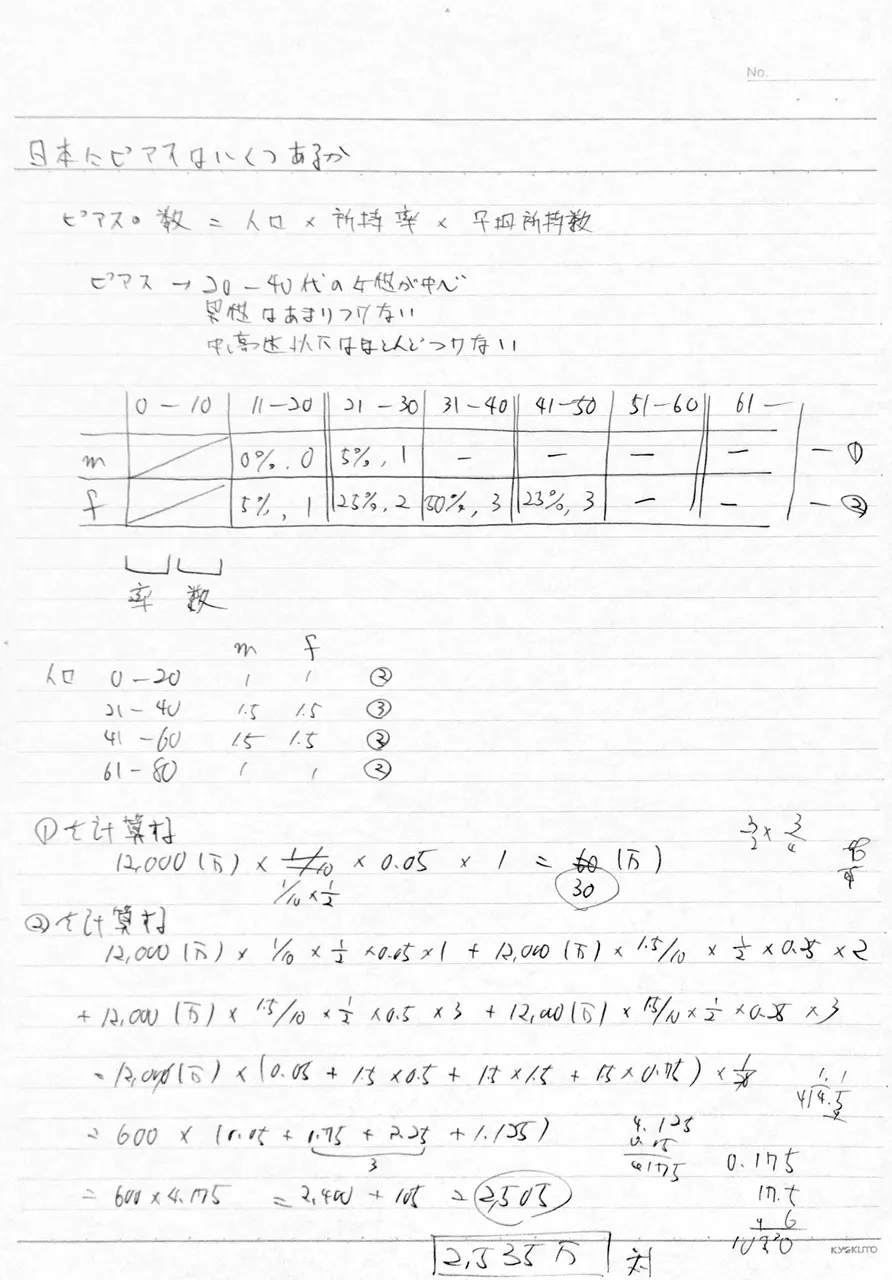 No.
日本にピアスはいくつあるか
ピアスの数 = 人口 × 所持率 × 平均所持数
ピアス → 20-40代の女性が中心
男性はあまりつけない
中高生以下はほとんどつけない
0-10 11-20 21-30 31-40 41-50 51-60 61-
m 0%, 0 5%, 1 - - - - - ①
f 5%, 1 25%, 2 50%, 3 25%, 3 - - - ②
率 数
m f
人口 0-20 1 1 ②
21-40 1.5 1.5 ③
41-60 1.5 1.5 ③
61-80 1 1 ②
①を計算すね
12,000(万) × 1/10 × 0.05 × 1 = 60 (万)
1/10 × 1/2 30
3/2 × 3/4
②を計算すね
12,000(万) × 1/10 × 1/2 × 0.05 × 1 + 12,000(万) × 1.5/10 × 1/2 × 0.25 × 2
+ 12,000(万) × 1.5/10 × 1/2 × 0.5 × 3 + 12,000(万) × 1.5/10 × 1/2 × 0.25 × 3
= 12,000(万) × (0.05 + 1.5 × 0.5 + 1.5 × 1.5 + 1.5 × 0.75) × 1/20
= 600 × (0.05 + 0.75 + 2.25 + 1.125)
3
4.125
0.05
4.175
0.175
= 600 × 4.175 = 2,400 + 105 = 2,505
17.5
× 6
2,535万 対
KYOKUTO